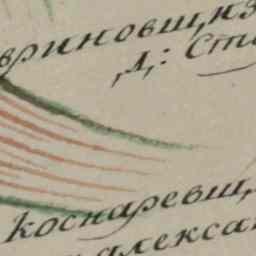 вриновщиз
Д: Ста
Коснаревщ
алекса